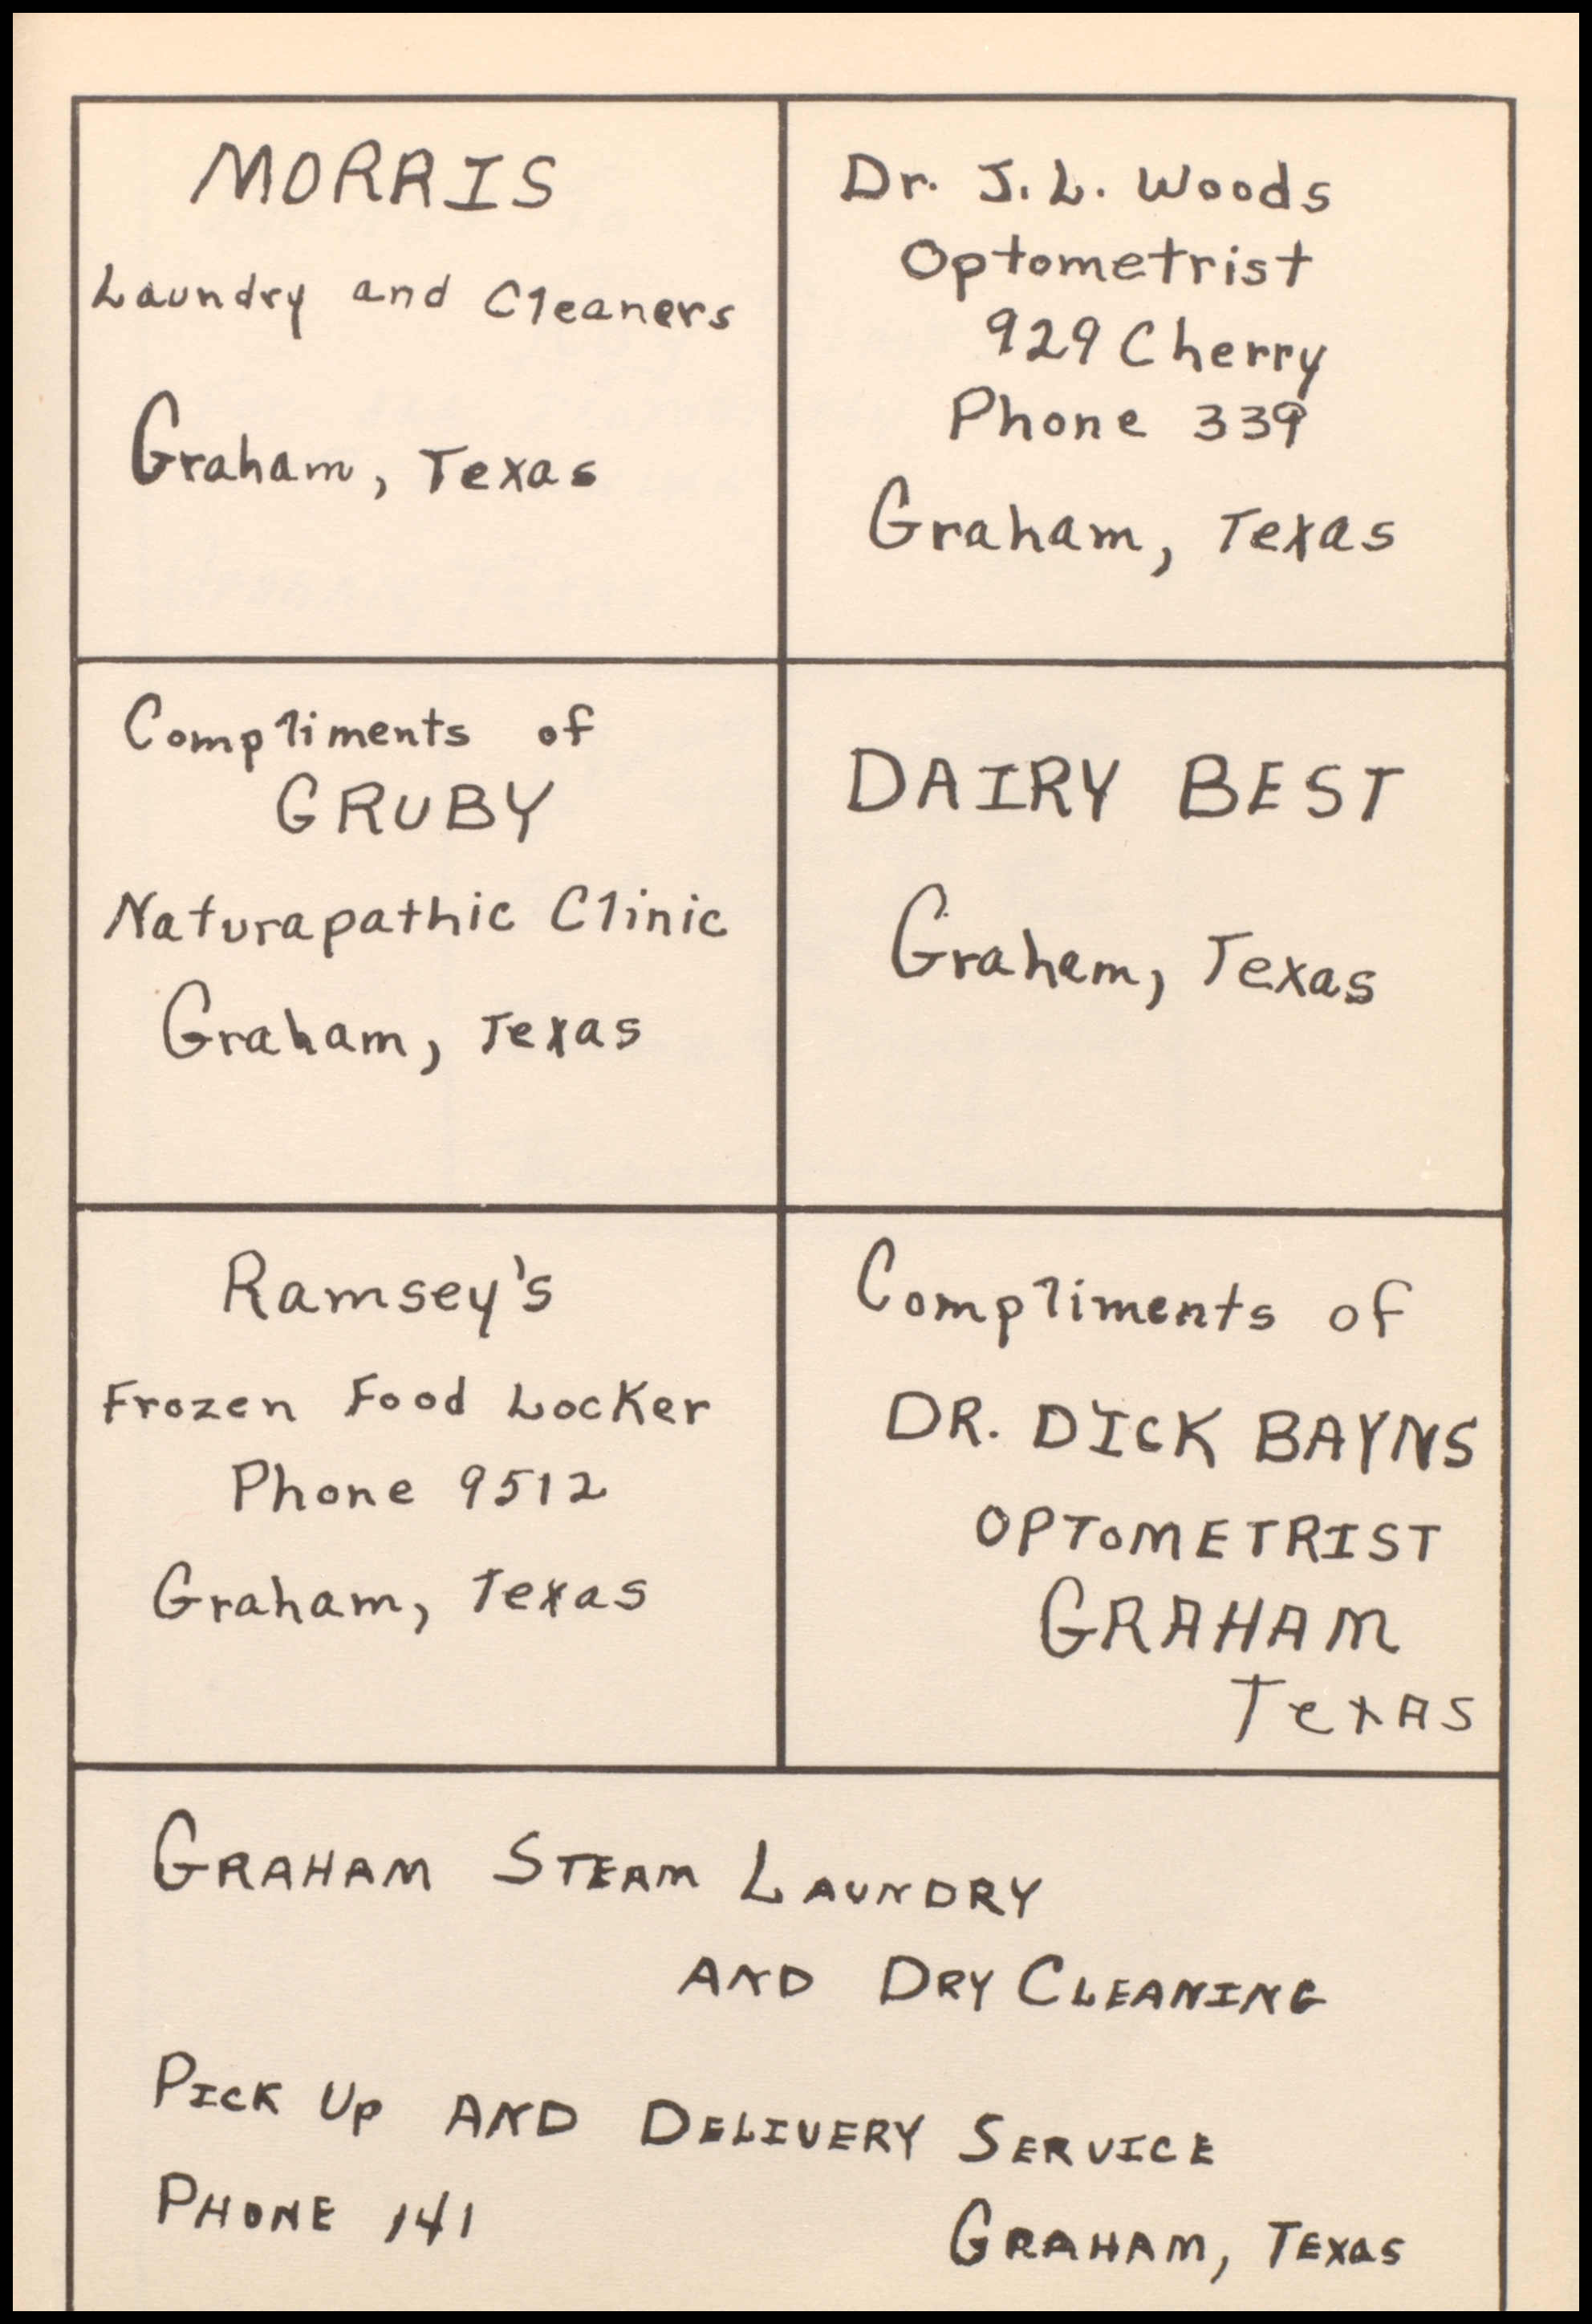 MORRIS
Laundry and Cleaners
Graham, Texas
Dr. J.L. Woods
Optometrist
929 Cherry
Phone 339
Graham, Texas
Compliments of
GRUBY
Naturapathic Clinic
Graham, Texas
DAIRY BEST
Graham, Texas
Ramsey's
Frozen Food Locker
Phone 9512
Graham, Texas
Compliments of
DR. DICK BAYNS
OPTOMETRIST
GRAHAM
TeXAS
GRAHAM STEAM LAUNDRY
AND DRY CLEANING
PICK UP AND DELIVERY SERVICE
PHONE 141
GRAHAM, TEXas